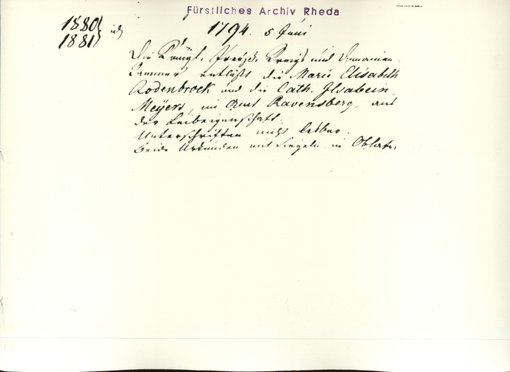 Fürstliches Archiv Rheda
1880
1881
1794. 5 Juni
Die Königl. Preuß. Kriegs und Domainen
Kammer entläßt die Marie Elisabeth
Rodenbrock und die Cath. Ilsabein
Meyers, im Amt Ravensberg, aus
der Leibeigenschaft.
Unterschriften nicht lesbar.
Beide Urkunden mit Siegeln in Oblate.